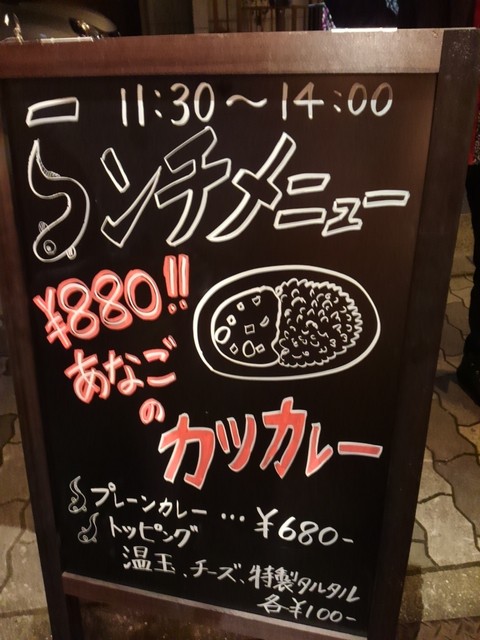 11:30～14:00
ランチメニュー
¥880!!
あなご
の
カツカレー
プレーンカレー…¥680-
トッピング
温玉、チーズ、特製タルタル
各¥100-